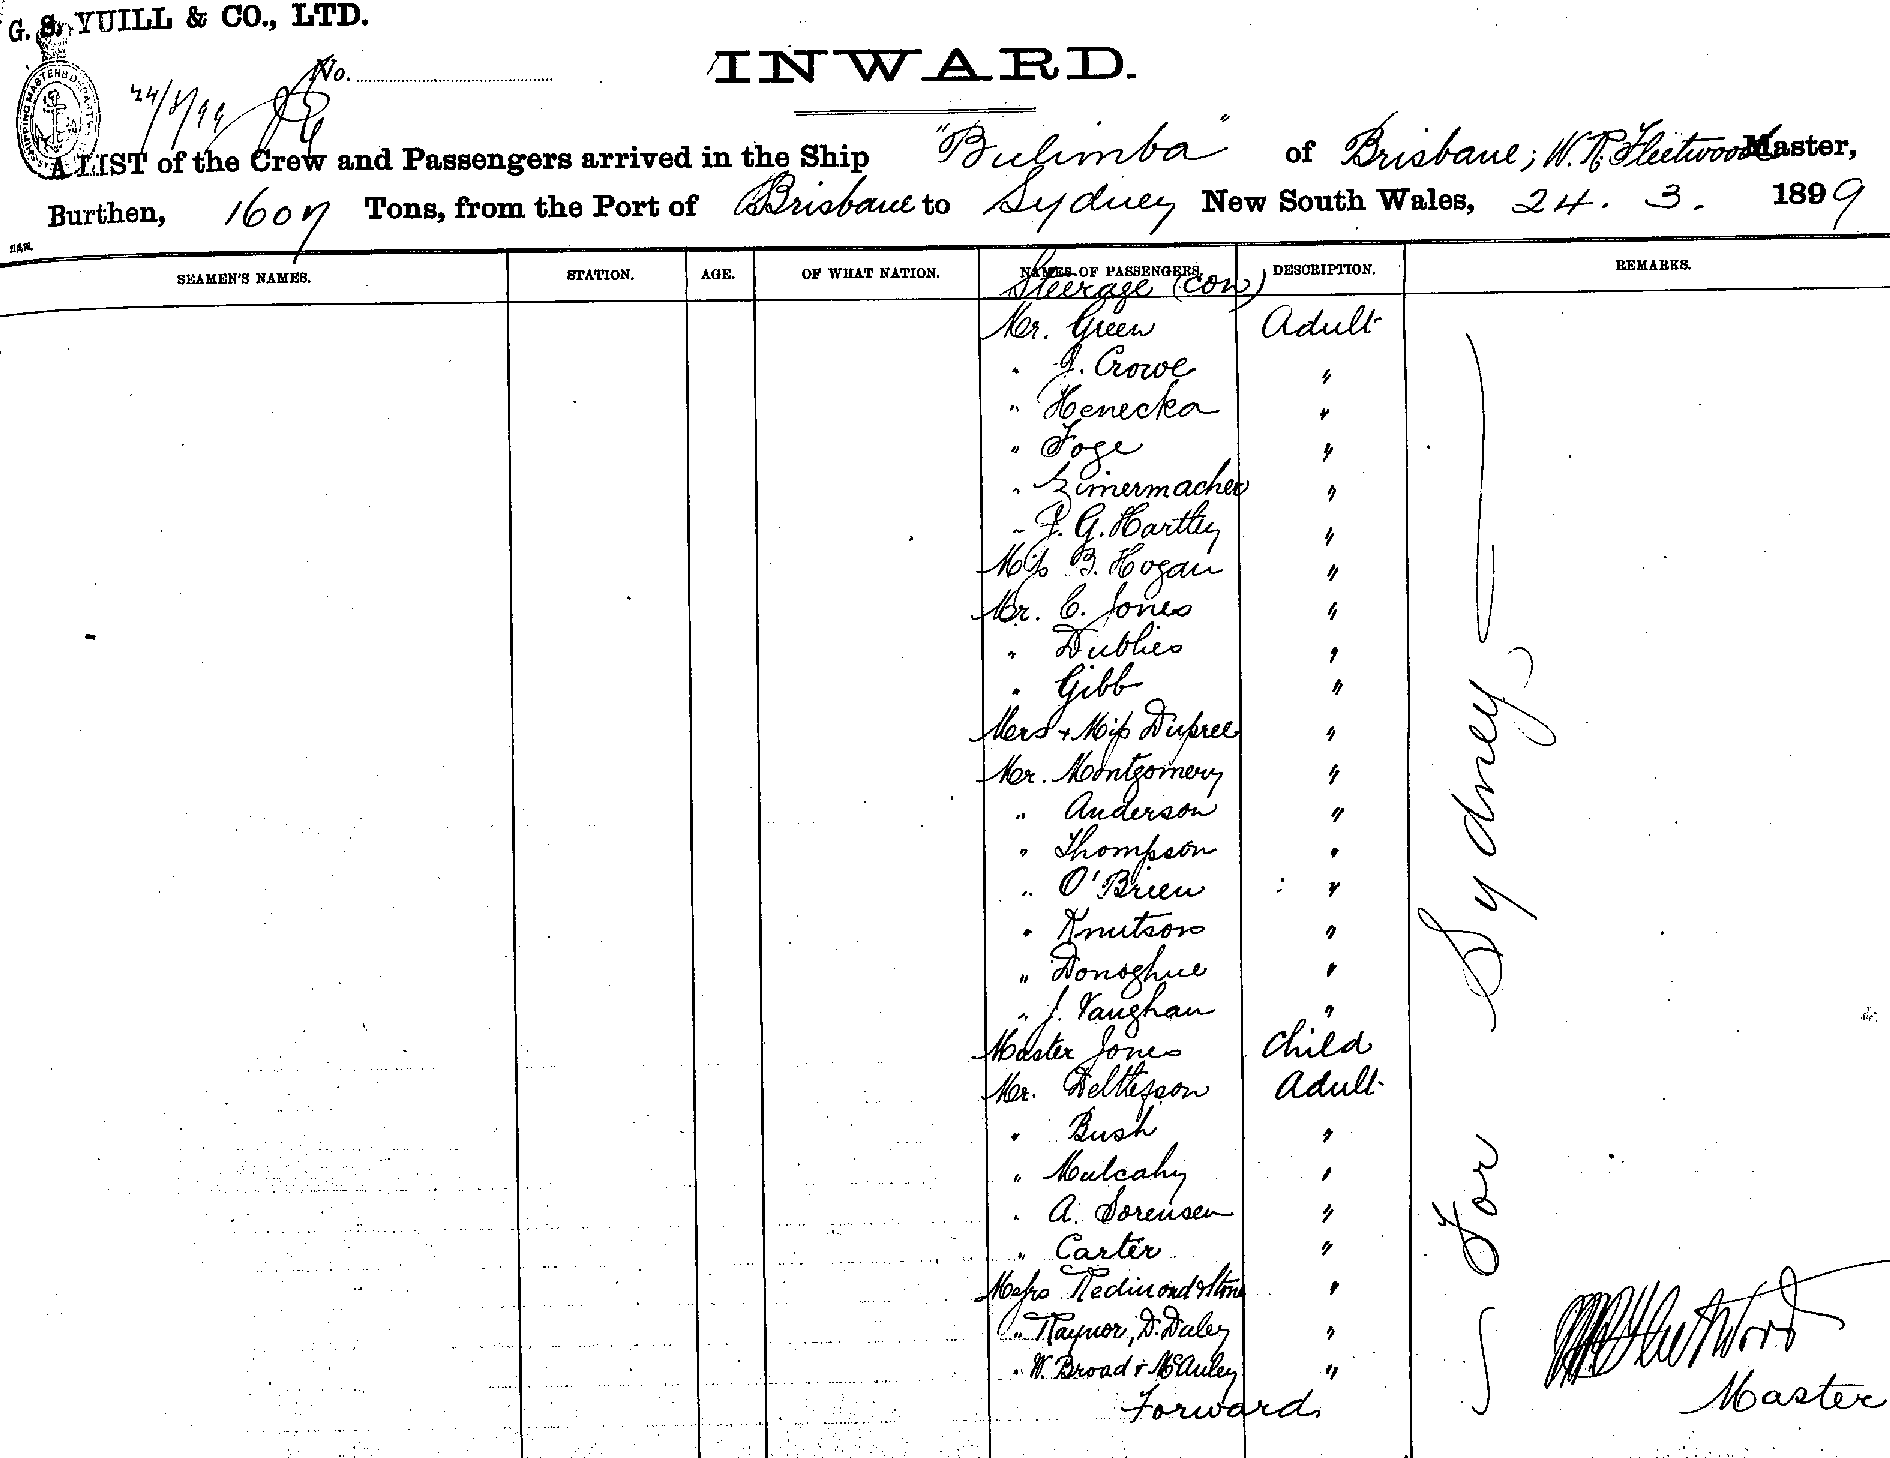 G. S. YUILL & CO., LTD.
No.
INWARD.
24/3/99
A LIST of the Crew and Passengers arrived in the Ship "Bulimba" of Brisbane; W. R. Fleetwood Master,
Burthen, 1607 Tons, from the Port of Brisbane to Sydney New South Wales, 24. 3. 1899
SEAMEN'S NAMES. STATION. AGE. OF WHAT NATION. NAMES OF PASSENGERS. DESCRIPTION. REMARKS.
Steerage (con)
Mr. Green Adult
" J. Crowe "
" Henecka "
" Foge "
" Zimermacher "
" J. G. Hartley "
Miss B. Hogan "
Mr. C. Jones "
" Dublies "
" Gibb "
Mrs + Miss Dupree "
Mr. Montgomery "
" Anderson "
" Thompson "
" O'Brien "
" Knutson "
" Donoghue "
" J. Vaughan "
Master Jones Child
Mr. Adult
" Bush "
" Mulcahy "
" A. Sorensen "
" Carter "
Messrs Redmond & Stone "
" Raynor, D. Daley "
" W. Broad + McAuley "
Forward
For Sydney
W R Fleetwood
Master